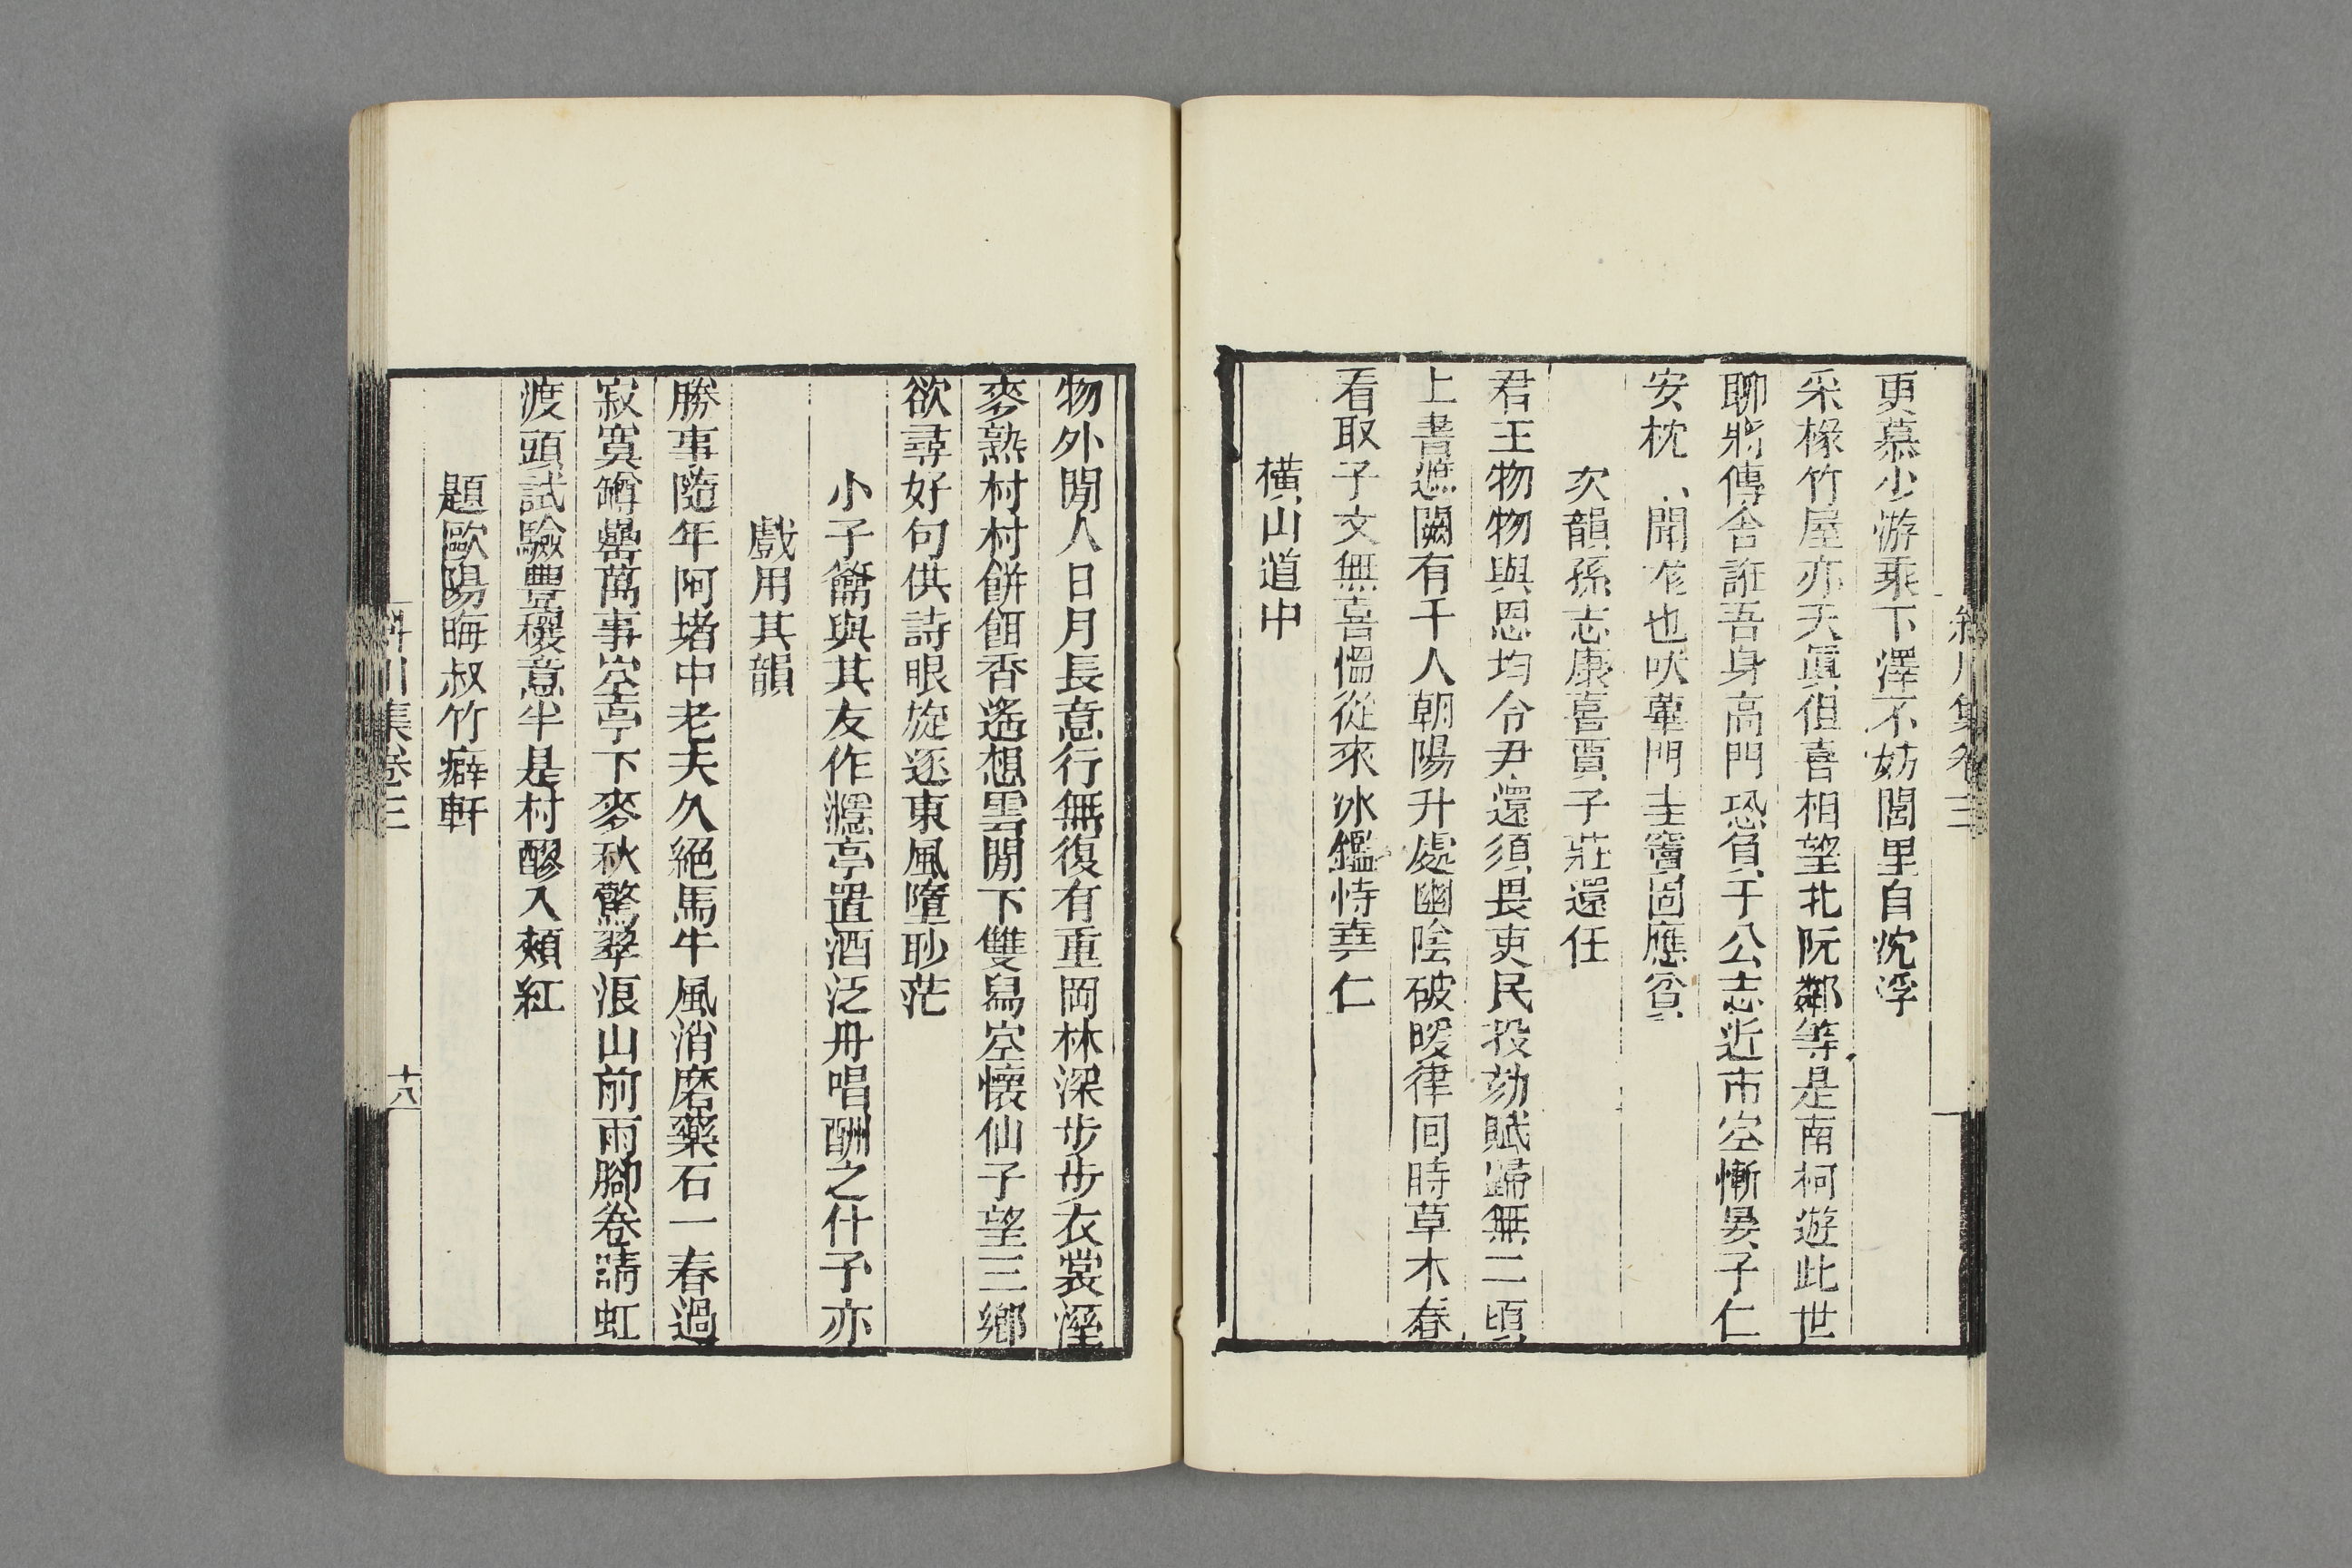 更慕少游乘下澤不妨閭里自沈浮
采椽竹屋亦天眞但喜相望北阮鄰等是南柯遊此世
聊將傳舍誑吾身高門恐負于公志近市空慚晏子仁
安枕聞也吠蓽門圭竇固應貧
次韻孫志康喜賈子莊還任
君王物物與恩均令尹還須畏吏民投劾賦歸無二頃
上書遮闕有千人朝陽升處幽陰破暖律回時草木春
看取子文無喜慍從來冰鑑恃堯仁
橫山道中
物外閒人日月長意行無復有重岡林深步步衣裳溼
麥熟村村餅餌香遙想雲閒下雙舄空懷仙子望三鄉
欲尋好句供詩眼旋逐東風墮眇茫
小子籥與其友作濦亭置酒泛舟唱酬之什予亦
戲用其韻
勝事隨年阿堵中老夫久絕馬牛風消磨藥石一春過
寂寞罇罍萬事空亭下麥秋驚翠浪山前雨腳卷晴虹
渡頭試驗豐穰意半是村醪入頰紅
題歐陽晦叔竹癖軒
斜川集卷三
十八